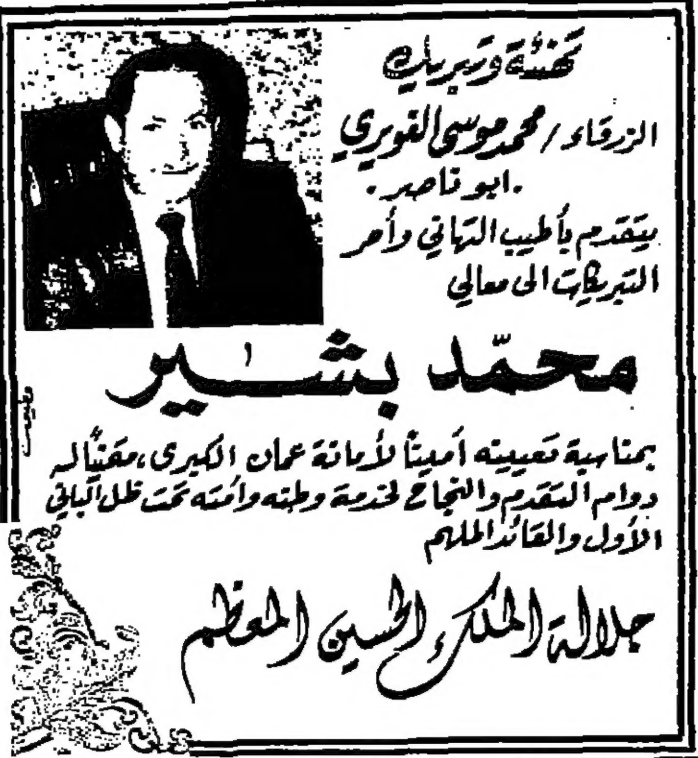 تهنئة وتبريك
الزرقاء / محمد موسى الغويري
. ابو ناصر .
يتقدم بأطيب التهاني وأحر
التبريكات الى معالي
محمّد بشير
بمناسبة تعيينه أمينًا لأمانة عمان الكبرى، متمنياً له
دوام التقدم والنجاح لخدمة وطنه وأمته تحت ظل الباني
الأول والقائد الملهم
جلالة الملك الحسين المعظم